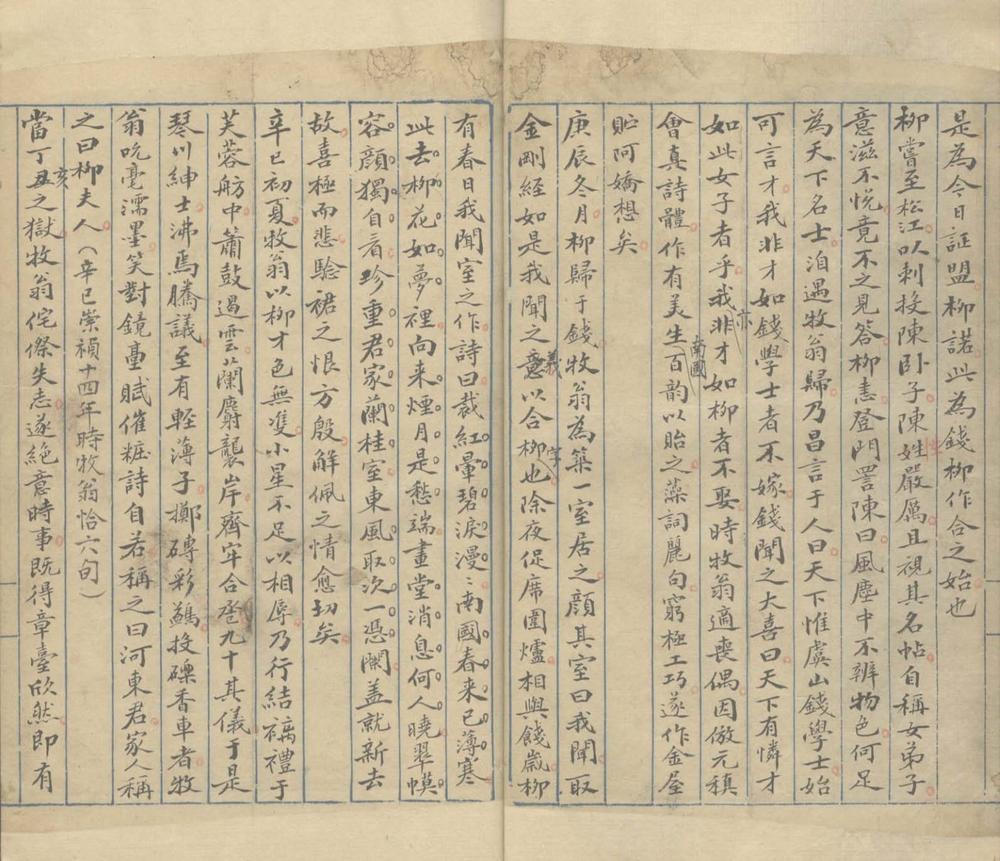 是為今日証盟柳諾此為錢柳作合之始也
柳嘗至松江以刺投陳卧子陳姓嚴厲且視其名帖自稱女弟子
意滋不悦竟不之見答柳恚登門詈陳曰風塵中不辨物色何足
為天下名士洎遇牧翁歸乃昌言于人曰天下惟虞山錢學士始
可言才我非才如錢學士者不嫁錢聞之大喜曰天下有憐才
如此女子者乎我亦非才如柳者不娶時牧翁適喪偶因倣元稹
會真詩體作有美生南國百韵以貽之藻詞麗句窮極工巧遂作金屋
貯阿嬌想矣
庚辰冬月柳歸于錢牧翁為築一室居之顔其室曰我聞取
金剛經如是我聞之義意以合柳字也除夜促席圍爐相與餞歲柳
有春日我聞室之作詩曰裁紅暈碧淚漫〻南國春来已薄寒
此去柳花如夢裡向来煙月是愁端畫堂消息何人曉翠幙
容顔獨自看珍重君家蘭桂室東風取次一憑闌盖就新去
故喜極而悲驗裙之恨方殷解佩之情愈切矣
辛巳初夏牧翁以柳才色無雙小星不足以相辱乃行結褵禮于
芙蓉舫中簫鼓遏雲蘭麝襲岸齊牢合卺九十其儀于是
琴川紳士沸焉騰議至有輕薄子擲磚彩鷁投礫香車者牧
翁吮毫濡墨笑對鏡臺賦催粧詩自若稱之曰河東君家人稱
之曰柳夫人（辛巳崇禎十四年時牧翁恰六旬）
當丁丑亥之獄牧翁侘傺失志遂絶意時事既得章臺欣然即有